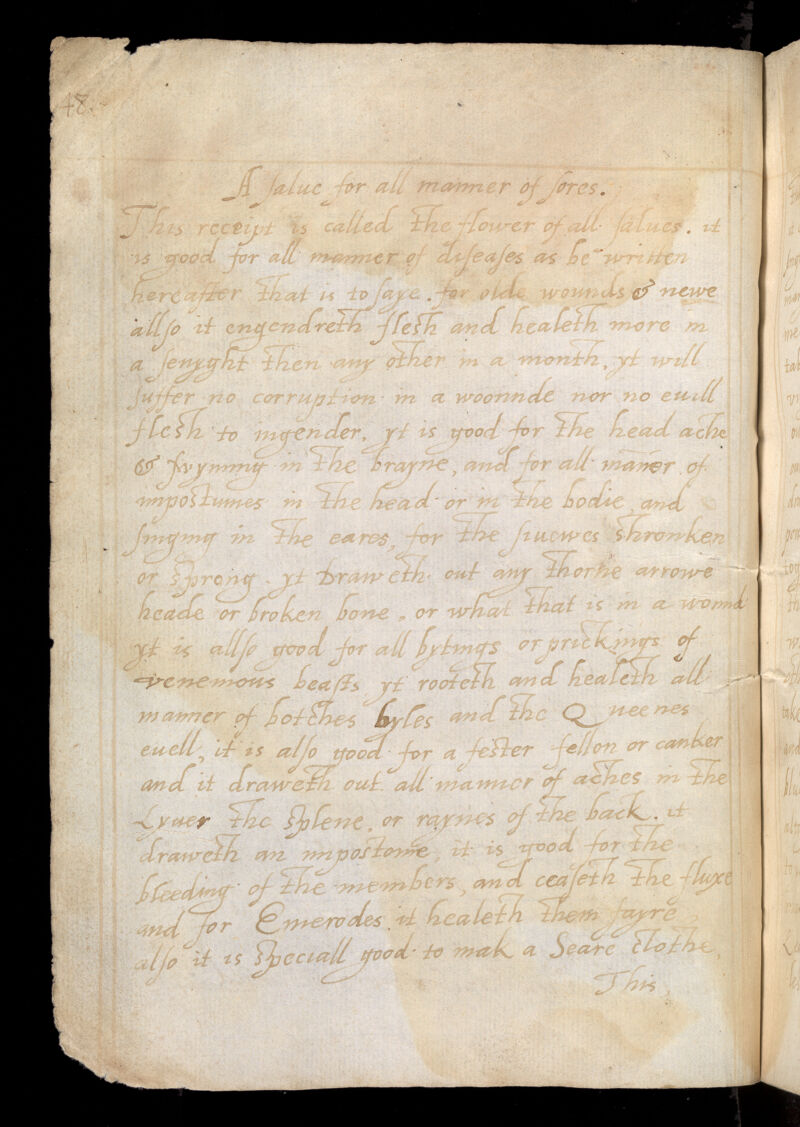 48.
A salue for all manner of sores.
This receipt is called the flower of all salues. it
is good for all manner of diseases as be written
hereafter that is to saye. for olde wounds & newe
allso it engendreth flesh and healeth more in
a senyght then any other in a month, yt will
suffer no corruption in a woonnde nor no euill
flesh to ingender. yt is good for the head ache
& swymmig in the brayne, and for all māner of
impostumes in the head or in the bodie and
singing in the eares, for the sinewes shronken
or sprong. yt draweth out any thorne arrowe
heade or broken bone. or what that is in a wound
yt is allso good for all bytings or prickings of
venemous beasts yt rooteth and healeth all
manner of botches byles and the Queenes
euell, it is also good for a fester fellon or canker
and it draweth out all manner of aches in the
Lyuer the splene, or raynes of the back. it
draweth an impostome, it is good for the
bleeding of the members, and ceaseth the fluxe
and for Emerodes it healeth them fayre
also it is speciall good to mak a Seare clothe,
This